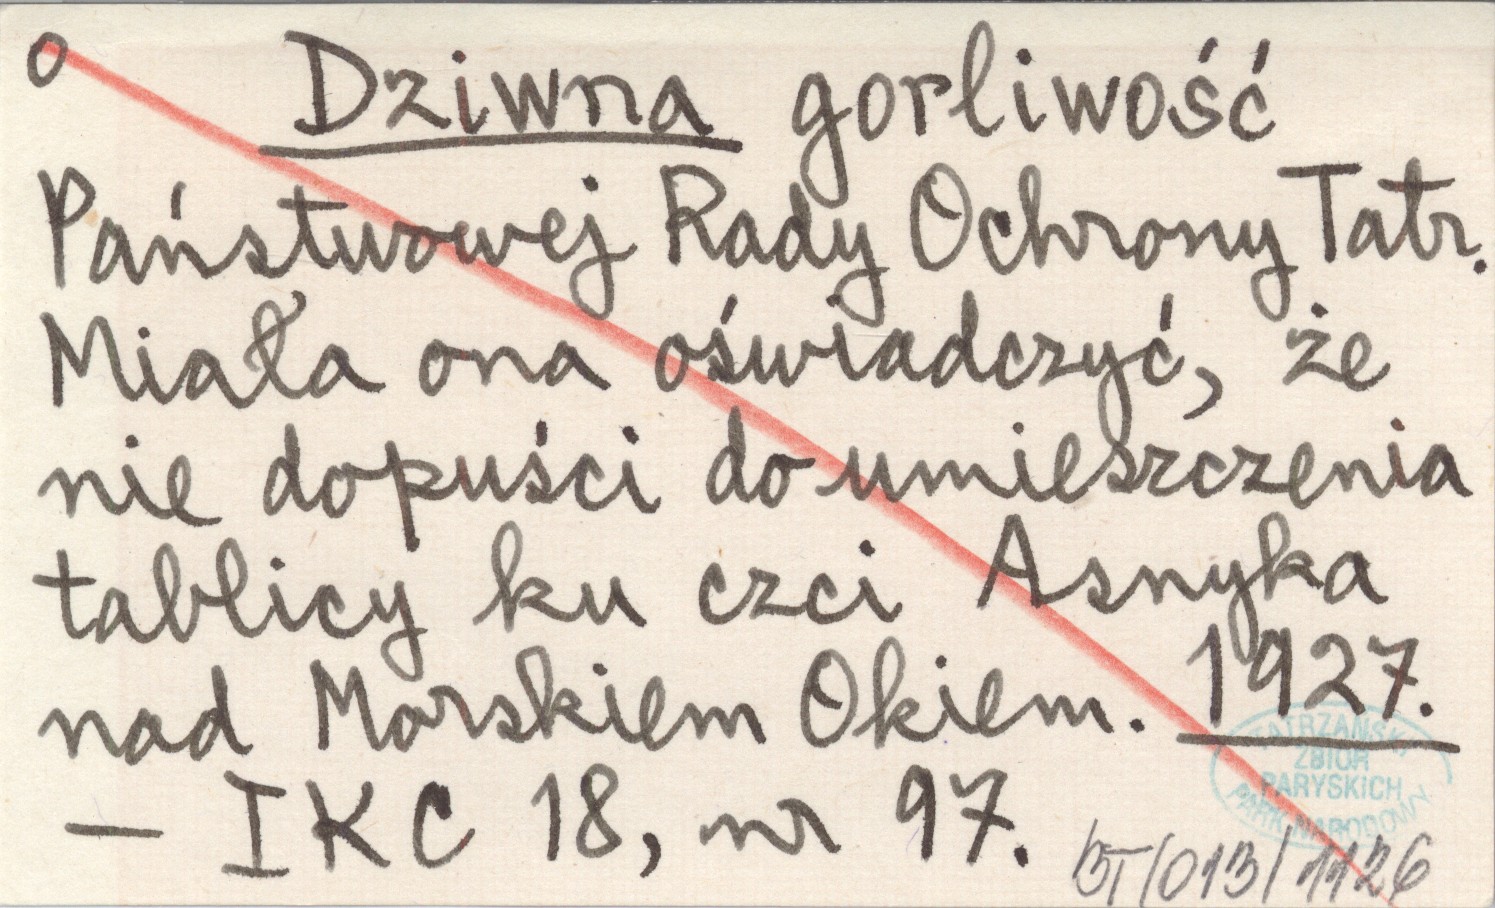 o Dziwna gorliwość
Państwowej Rady Ochrony Tatr.
Miała ona oświadczyć, że
nie dopuści do umieszczenia
tablicy ku czci Asnyka
nad Morskiem Okiem. 1927.
— IKC 18, nr 97.
TATRZAŃSKI
ZBIÓR
PARYSKICH
PARK NARODOWY
BT/013/1126